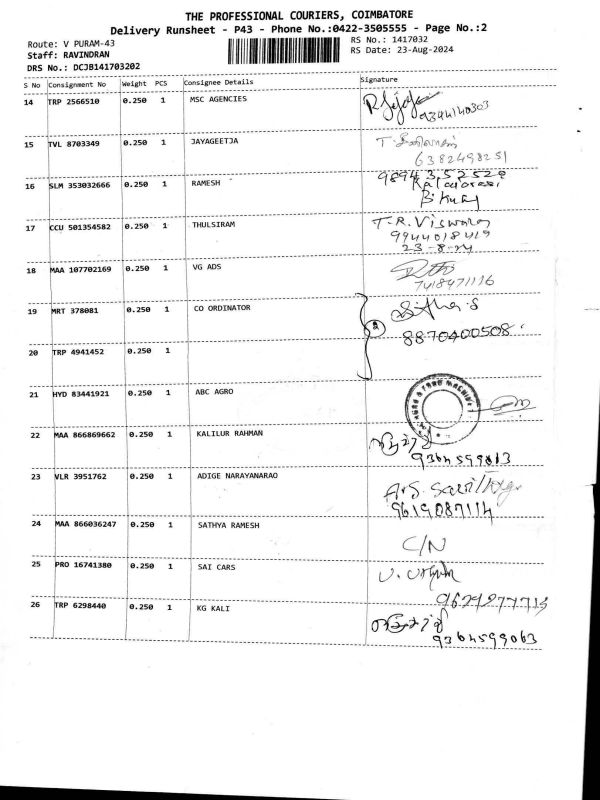 THE PROFESSIONAL COURIERS, COIMBATORE
Delivery Runsheet - P43 - Phone No.:0422-3505555 - Page No.:2
Route: V PURAM-43
RS No.: 1417032
Staff: RAVINDRAN
RS Date: 23-Aug-2024
DRS No.: DCJB141703202
S No Consignment No Weight PCS Consignee Details Signature
14 TRP 2566510 0.250 1 MSC AGENCIES
9344140303
15 TVL 8703349 0.250 1 JAYAGEETJA
6382498251
16 SLM 353032666 0.250 1 RAMESH 9894352528
Kalaiarasi
17 CCU 501354582 0.250 1 THULSIRAM T.R. Viswana
9944018419
23-8-24
18 MAA 107702169 0.250 1 VG ADS
7418471116
19 MRT 378081 0.250 1 CO ORDINATOR
2
8870400508
20 TRP 4941452 0.250 1
21 HYD 83441921 0.250 1 ABC AGRO
22 MAA 866869662 0.250 1 KALILUR RAHMAN
23 VLR 3951762 0.250 1 ADIGE NARAYANARAO
9619087114
24 MAA 866036247 0.250 1 SATHYA RAMESH
C/N
25 PRO 16741380 0.250 1 SAI CARS
26 TRP 6298440 0.250 1 KG KALI
9364599063